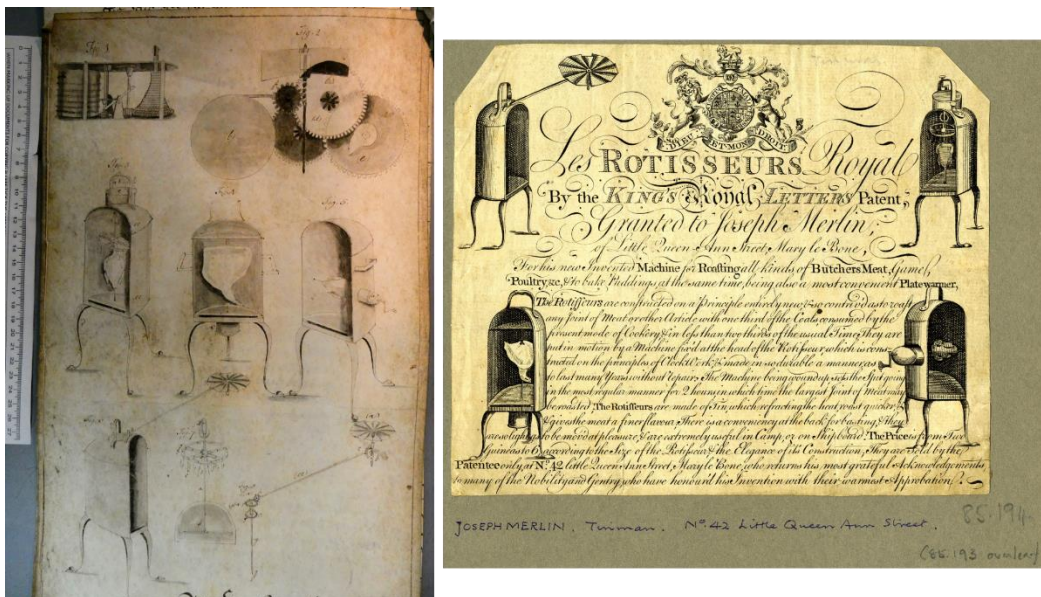 Fig. 1
Fig. 2
Fig. 5
DIEU ET MON DROIT
Les ROTISSEURS Royal
By the KING'S Royal LETTERS Patent,
Granted to Joseph Merlin,
of Little Queen Ann Street, Mary le Bone,
For his new Invented Machine for Roasting all kinds of Butchers Meat, Game,
Poultry &c, & to bake Puddings at the same time, being also a most convenient Platewarmer,
The Rotisseurs are constructed on a Principle entirely new, & so contrived as to roast
any Joint of Meat or other Article with one third of the Coals consumed by the
present mode of Cookery, & in less than two thirds of the usual Time They are
put in motion by a Machine fix'd at the head of the Rotisseur which is cons-
tructed on the principles of Clock Work, & made in so durable a manner as
to last many Years without repair. The Machine being wound up sets the Spit going
in the most regular manner for 2 hours, in which time the largest Joint of Meat may
be roasted. The Rotisseurs are made of Tin, which refracting the heat roast quicker,
& gives the meat a finer flavour There is a conveniency at the back for basting, & they
are so light as to be mov'd at pleasure, & are extremely useful in Camp, or on Shipboard. The Price is from Two
guineas to 6, according to the Size of the Rotisseur & the Elegance of its Construction, They are Sold by the
Patentee only at No. 42 little Queen Ann Street, Mary le Bone, who returns his most grateful Acknowledgements
to many of the Nobility and Gentry, who have honour'd his Invention with their warmest Approbation.
JOSEPH MERLIN, Tinman. No. 42 Little Queen Ann Street.
85.194
(85.193 overleaf)